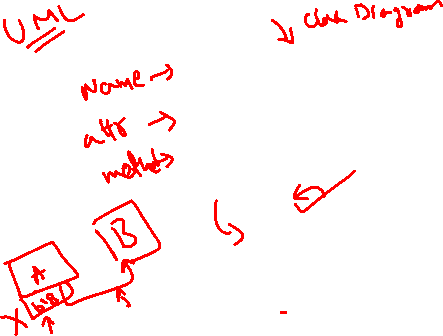 UML
Class Diagram
Name →
attr →
method →
B
A